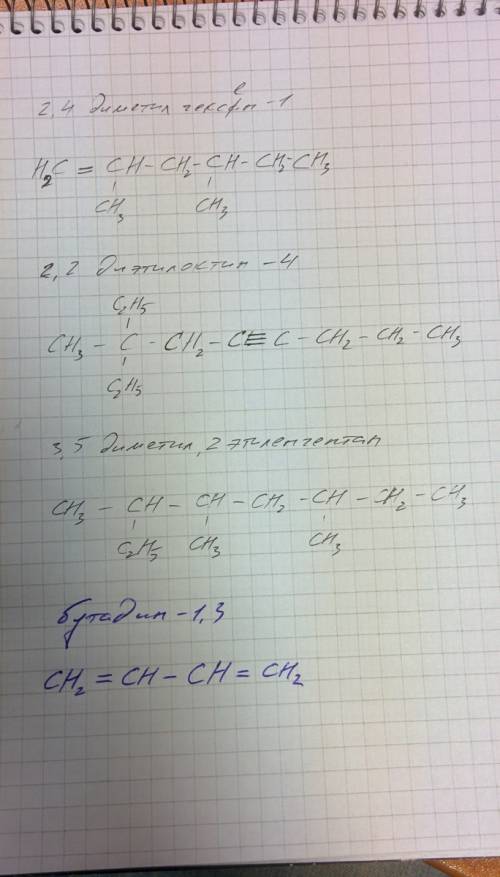 2,4 диметил гексен -1
H₂C = CH - CH₂ - CH - CH₂ - CH₃
CH₃ CH₃
2,2 диэтилоктин -4
C₂H₅
CH₃ - C - CH₂ - C ≡ C - CH₂ - CH₂ - CH₃
C₂H₅
3,5 диметил, 2 этиленгептан
CH₃ - CH - CH - CH₂ - CH - CH₂ - CH₃
C₂H₅ CH₃ CH₃
бутадин -1,3
CH₂ = CH - CH = CH₂